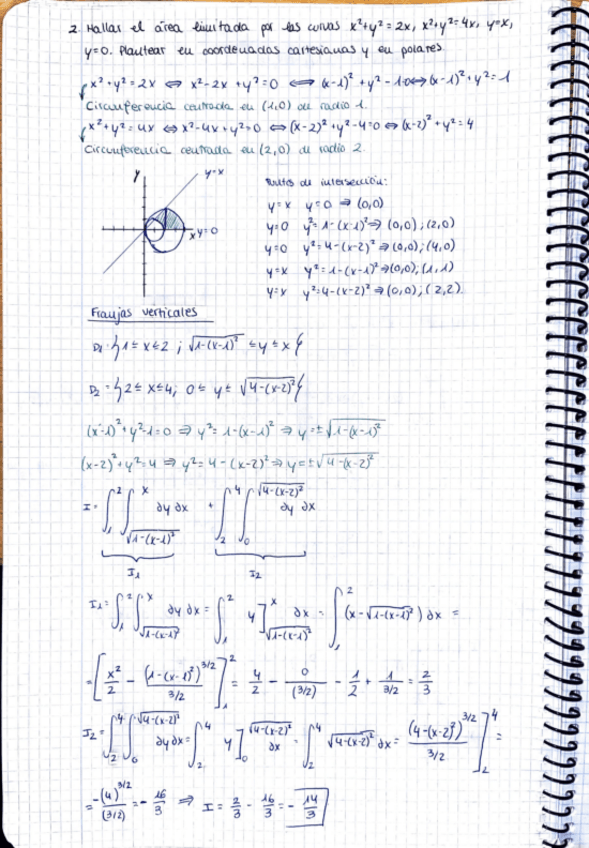 2. Hallar el área limitada por las curvas x²+y²=2x, x²+y²=4x, y=x,
y=0. Plantear en coordenadas cartesianas y en polares.
x²+y²=2x ⇔ x²-2x+y²=0 ⇔ (x-1)²+y²-1=0 ⇔ (x-1)²+y²=1
Circunferencia centrada en (1,0) de radio 1.
x²+y²=4x ⇔ x²-4x+y²=0 ⇔ (x-2)²+y²-4=0 ⇔ (x-2)²+y²=4
Circunferencia centrada en (2,0) de radio 2.
y
y=x
x y=0
Puntos de intersección:
y=x y=0 ⇒ (0,0)
y=0 y²=1-(x-1)² ⇒ (0,0); (2,0)
y=0 y²=4-(x-2)² ⇒ (0,0); (4,0)
y=x y²=1-(x-1)² ⇒ (0,0); (1,1)
y=x y²=4-(x-2)² ⇒ (0,0); (2,2)
Franjas verticales
D₁={1≤x≤2; √(1-(x-1)²) ≤y≤x}
D₂={2≤x≤4; 0≤y≤√(4-(x-2)²)}
(x-1)²+y²-1=0 ⇒ y²=1-(x-1)² ⇒ y=±√(1-(x-1)²)
(x-2)²+y²=4 ⇒ y²=4-(x-2)² ⇒ y=±√(4-(x-2)²)
I=∫₁² ∫_{√(1-(x-1)²)}^{x} ∂y ∂x + ∫₂⁴ ∫₀^{√(4-(x-2)²)} ∂y ∂x
I₁ I₂
I₁=∫₁² ∫_{√(1-(x-1)²)}^{x} ∂y ∂x = ∫₁² y]_{√(1-(x-1)²)}^{x} ∂x = ∫₁² (x-√(1-(x-1)²)) ∂x =
=[x²/2 - (1-(x-1)²)^{3/2}/(3/2)]₁² = 4/2 - 0/(3/2) - 1/2 + 1/(3/2) = 2/3
I₂=∫₂⁴ ∫₀^{√(4-(x-2)²)} ∂y ∂x = ∫₂⁴ y]₀^{√(4-(x-2)²)} ∂x = ∫₂⁴ √(4-(x-2)²) ∂x = (4-(x-2)²)^{3/2}/(3/2)]₂⁴ =
= -(4)^{3/2}/(3/2) = -16/3 ⇒ I = 2/3 - 16/3 = -14/3